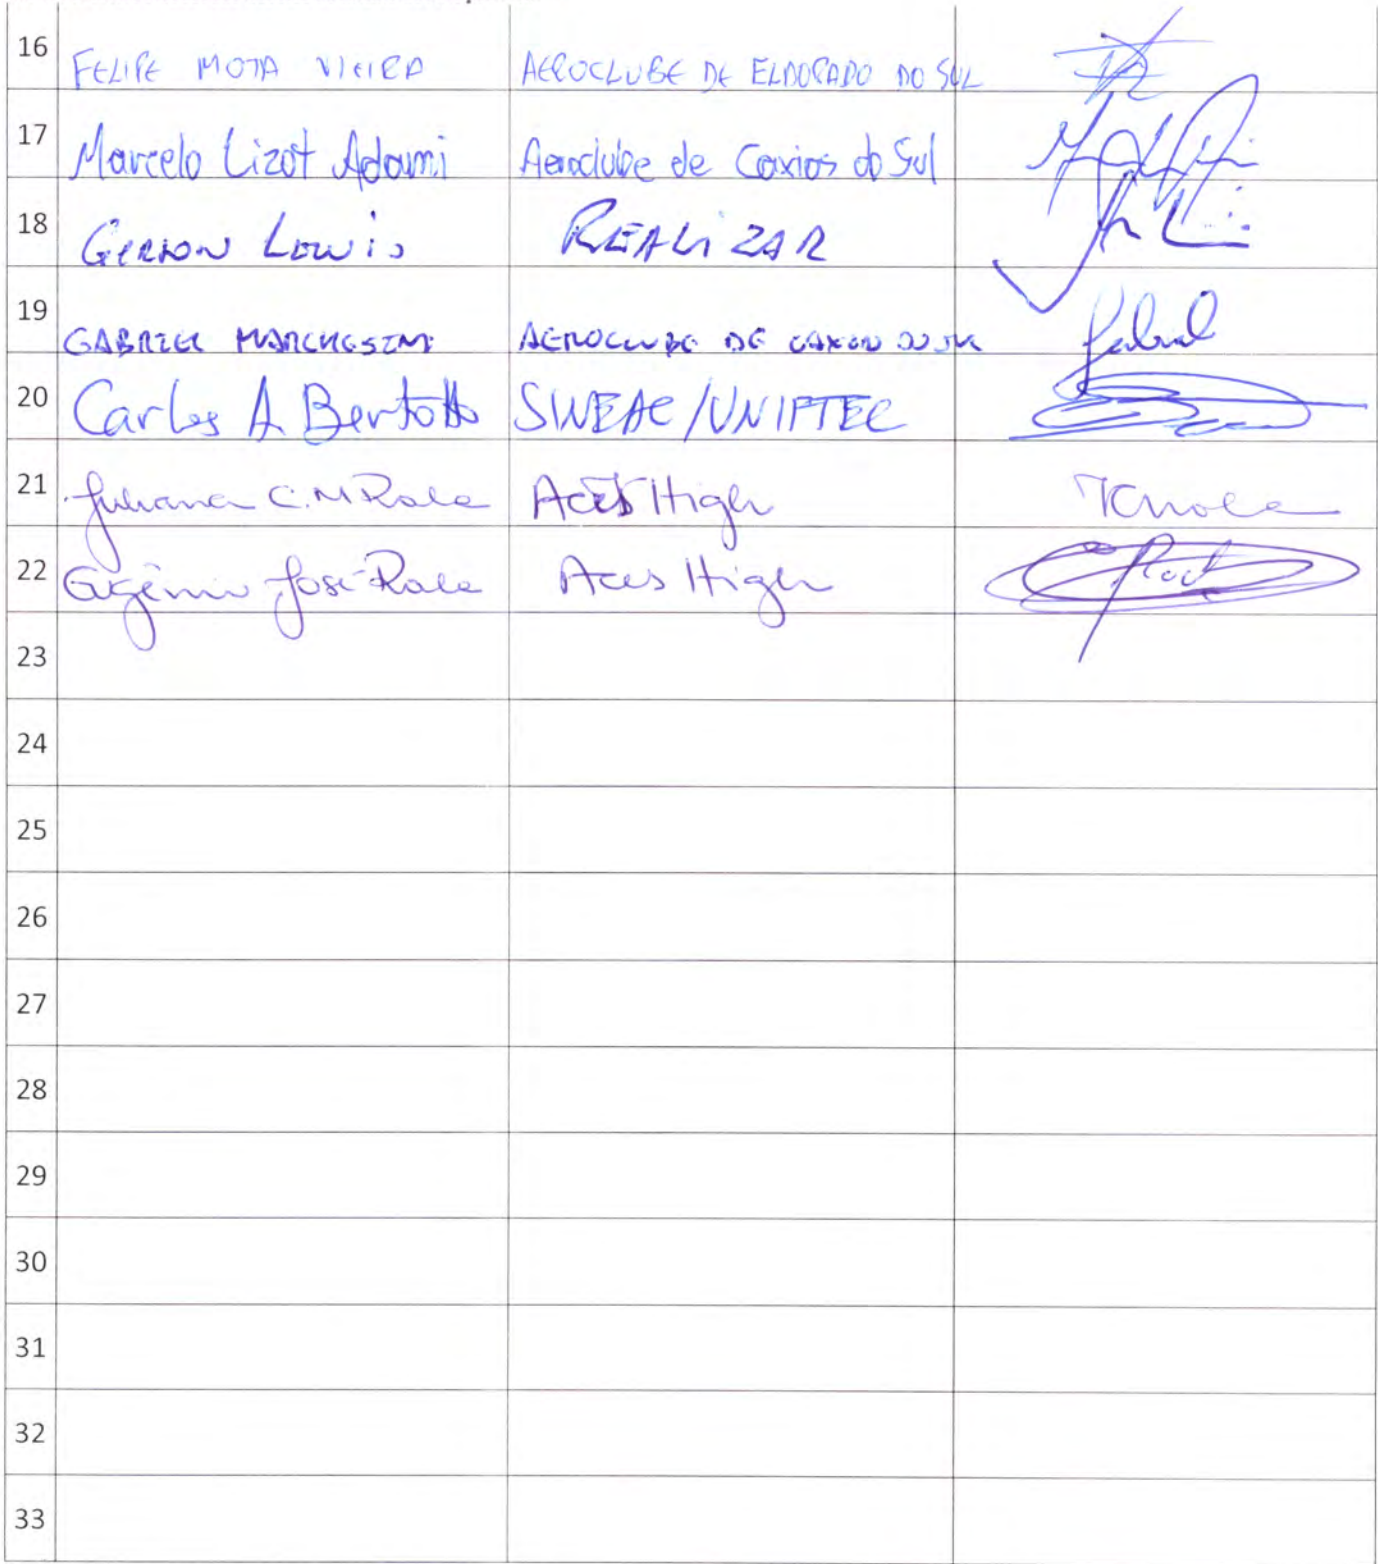 16 FELIPE MOTA VIEIRA AEROCLUBE DE ELDORADO DO SUL
17 Marcelo Lizot Adami Aeroclube de Caxias do Sul
18 GERSON LEWIS REALIZAR
19 GABRIEL MARCHESINI AEROCLUBE DE CAXIAS DO SUL Gabriel
20 Carlos A Bertotto SINEAC/UNIFTEC
21 Juliana C. M. Aces High
22 José Aces High
23
24
25
26
27
28
29
30
31
32
33